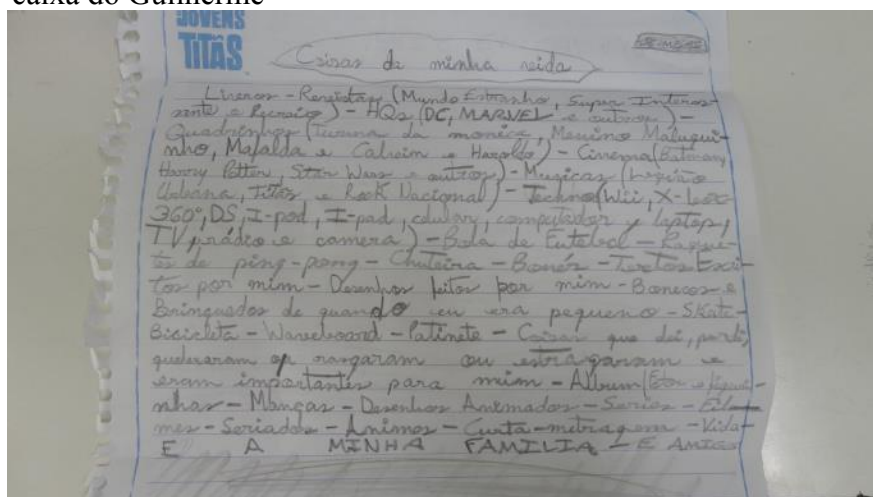 caixa do Guilherme
JOVENS
TITÃS
Coisas da minha vida
Livros - Revistas (Mundo Estranho, Super Interes-
sante e Recreio) - HQs (DC, MARVEL e outros) -
Quadrinhos (Turma da monica, Menino Maluqui-
nho, Mafalda e Calvin e Haroldo) - Cinema (Batman,
Harry Potter, Star Wars e outros) - Musicas (Legião
Urbana, Titãs e Rock Nacional) - Techno (Wii, X-box
360°, DS, I-pod, I-pad, celular, computador y laptop,
TV, rádio e camera) - Bola de Futebol - Raque-
tes de ping-pong - Chuteira - Bonés - Textos Escri-
tos por mim - Desenhos feitos por mim - Bonecos e
Brinquedos de quando eu era pequeno - Skate -
Bicicleta - Waveboard - Patinete - Coisas que dei, perdi,
quebraram rasgaram ou estragaram e
eram importantes para mim - Album (Fotos e figuri-
nhas - Mangas - Desenhos Animados - Series - Fil
mes - Seriados - Animes - Curta-metragem - Vida -
E A MINHA FAMILIA - E AMIGOS